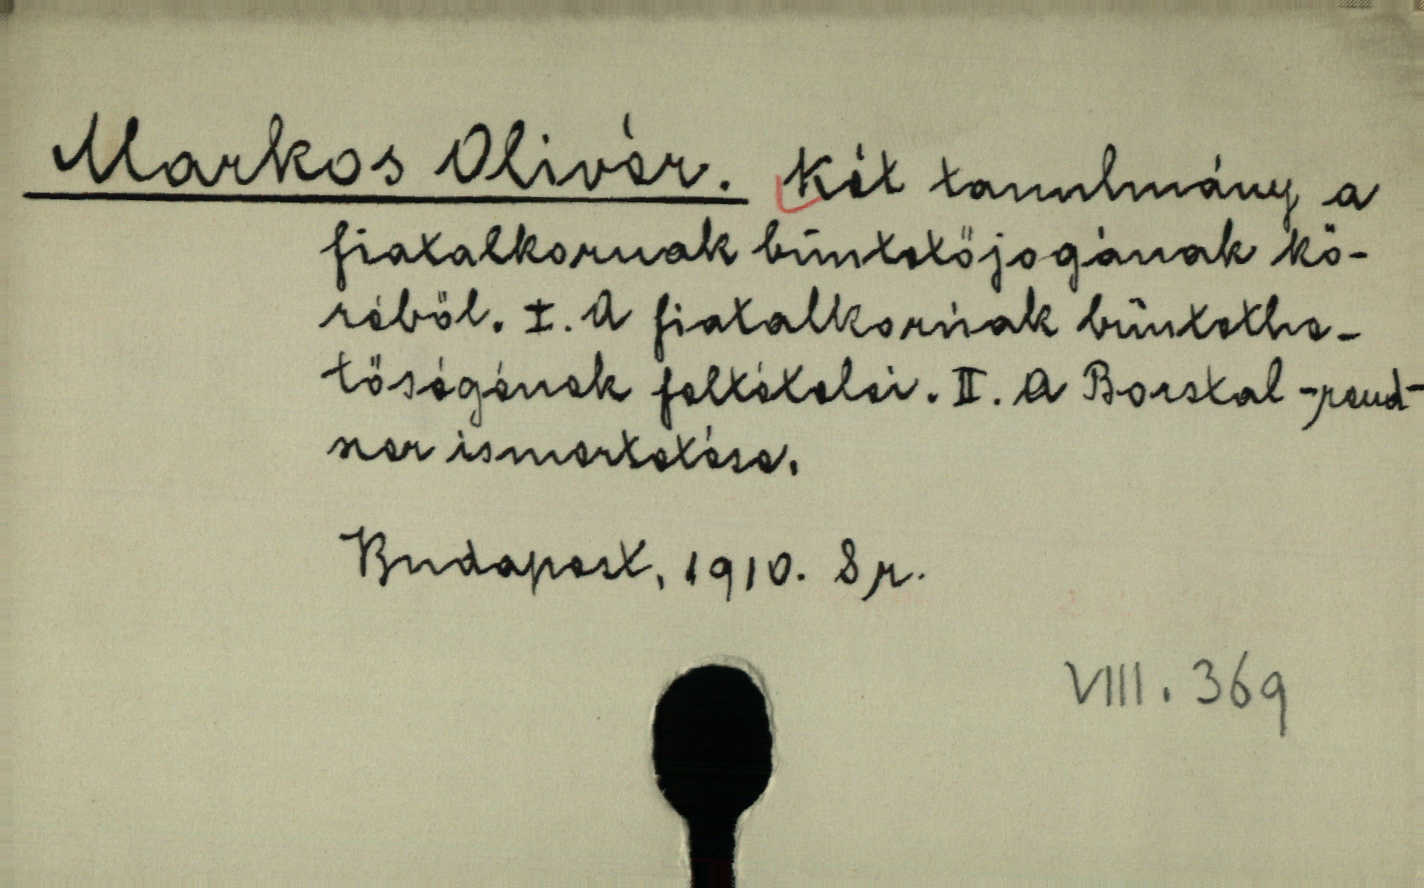 Markos Olivér. Két tanulmány a
fiatalkoruak büntetőjogának kö-
réből. I. A fiatalkorúak büntethe-
tőségének feltételei. II. A Borstal-rend-
szer ismertetése.
Budapest, 1910. 8 r.
VIII. 369